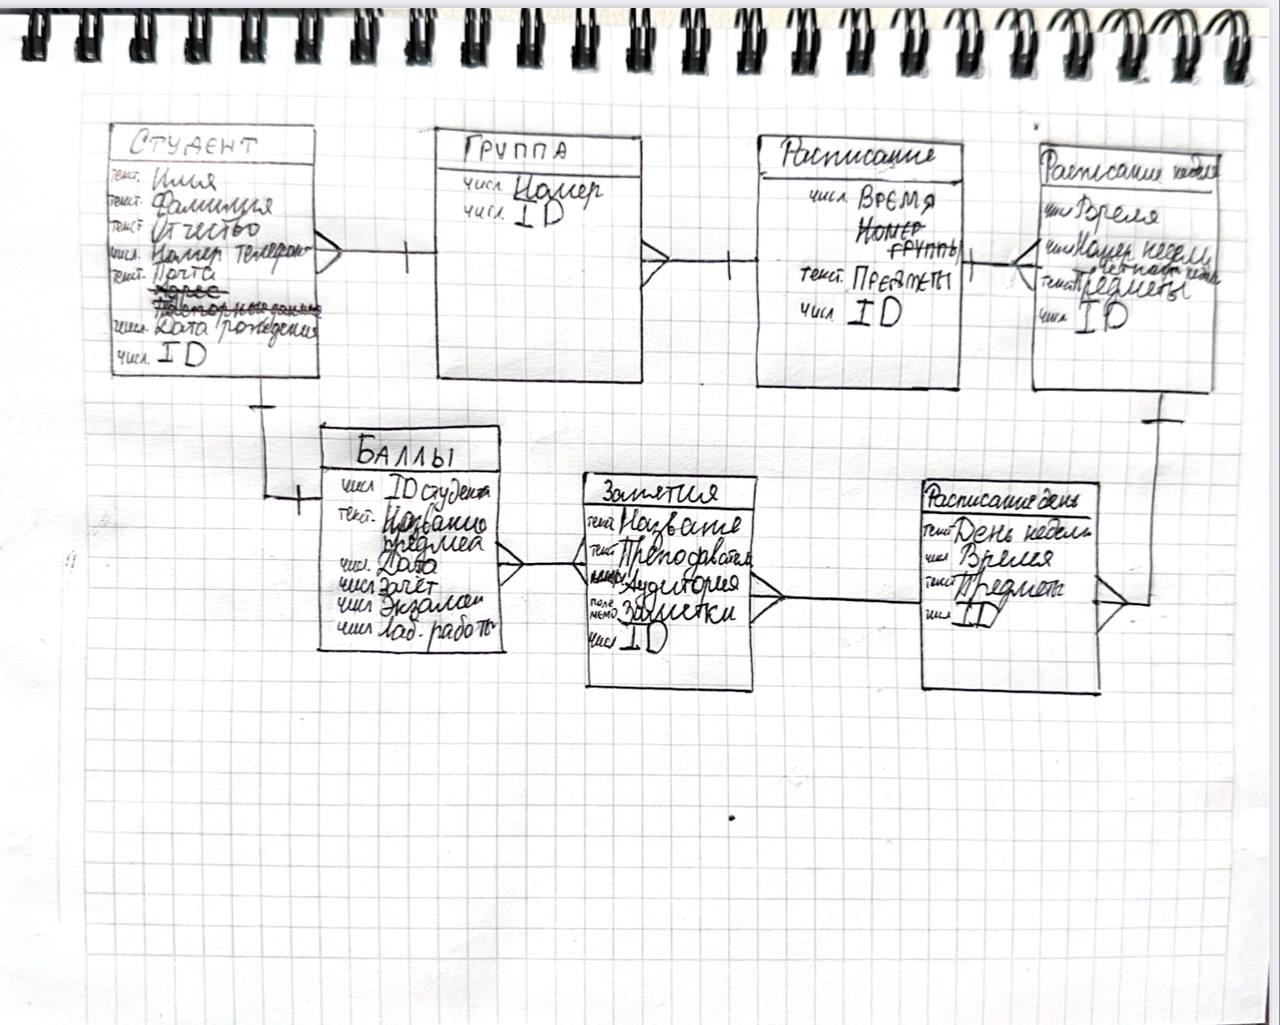 Студент
текст. Имя
текст. Фамилия
текст Отчество
числ. Номер телефон
текст. Почта
Адрес
Паспортные данные
числ. Дата рождения
числ. ID
Группа
числ. Номер
числ. ID
Расписание
числ. Время
Номер
группы
текст. Предметы
числ ID
Расписание неделя
числ Время
числ Номер недели
текст Предметы
числ ID
Баллы
числ ID студента
текст. Название
предмеа
числ. Дата
числ Зачёт
числ Экзамен
числ Лаб. работы
Занятия
текст Название
текст Преподаватель
Аудитория
поле
мемо Заметки
числ ID
Расписание день
текст День недели
числ Время
текст Предметы
числ ID